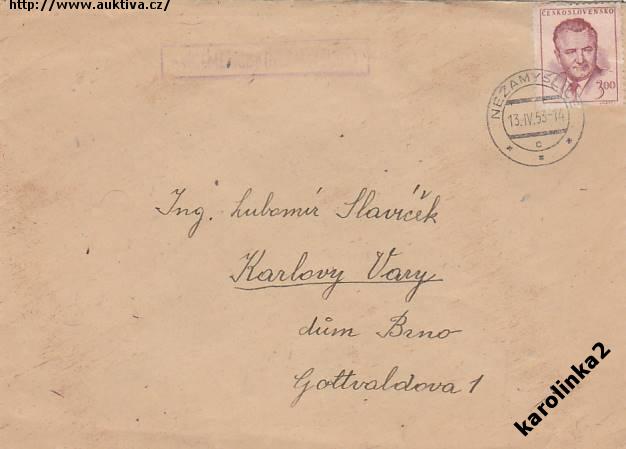 http://www.auktiva.cz/
ČESKOSLOVENSKO
3,00
NEZAMYSLICE
13.IV.53-14
c
Ing. Lubomír Slavíček
Karlovy Vary
dům Brno
Gottvaldova 1
karolinka2